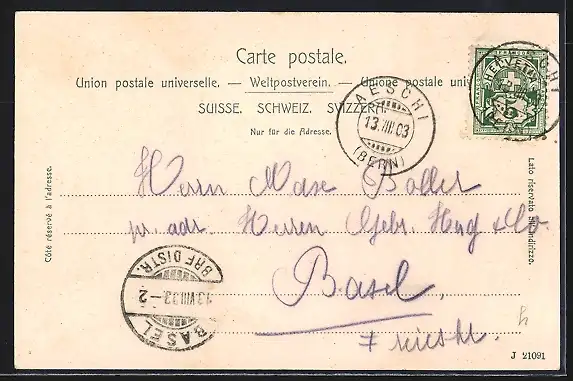 Carte postale.
Union postale universelle. — Weltpostverein. — Unione postale
SUISSE. SCHWEIZ. SVIZZERA.
Nur für die Adresse.
HELVETIA
5
AESCHI
13.VIII.03
(BERN)
Côté réservé à l'adresse.
Lato riservato all'indirizzo.
Herrn Max Boller
pr. adr. Herren Gebr. Hug & Co.
Basel
BRF. DISTR.
13.VIII.03.-2
BASEL
J 21091